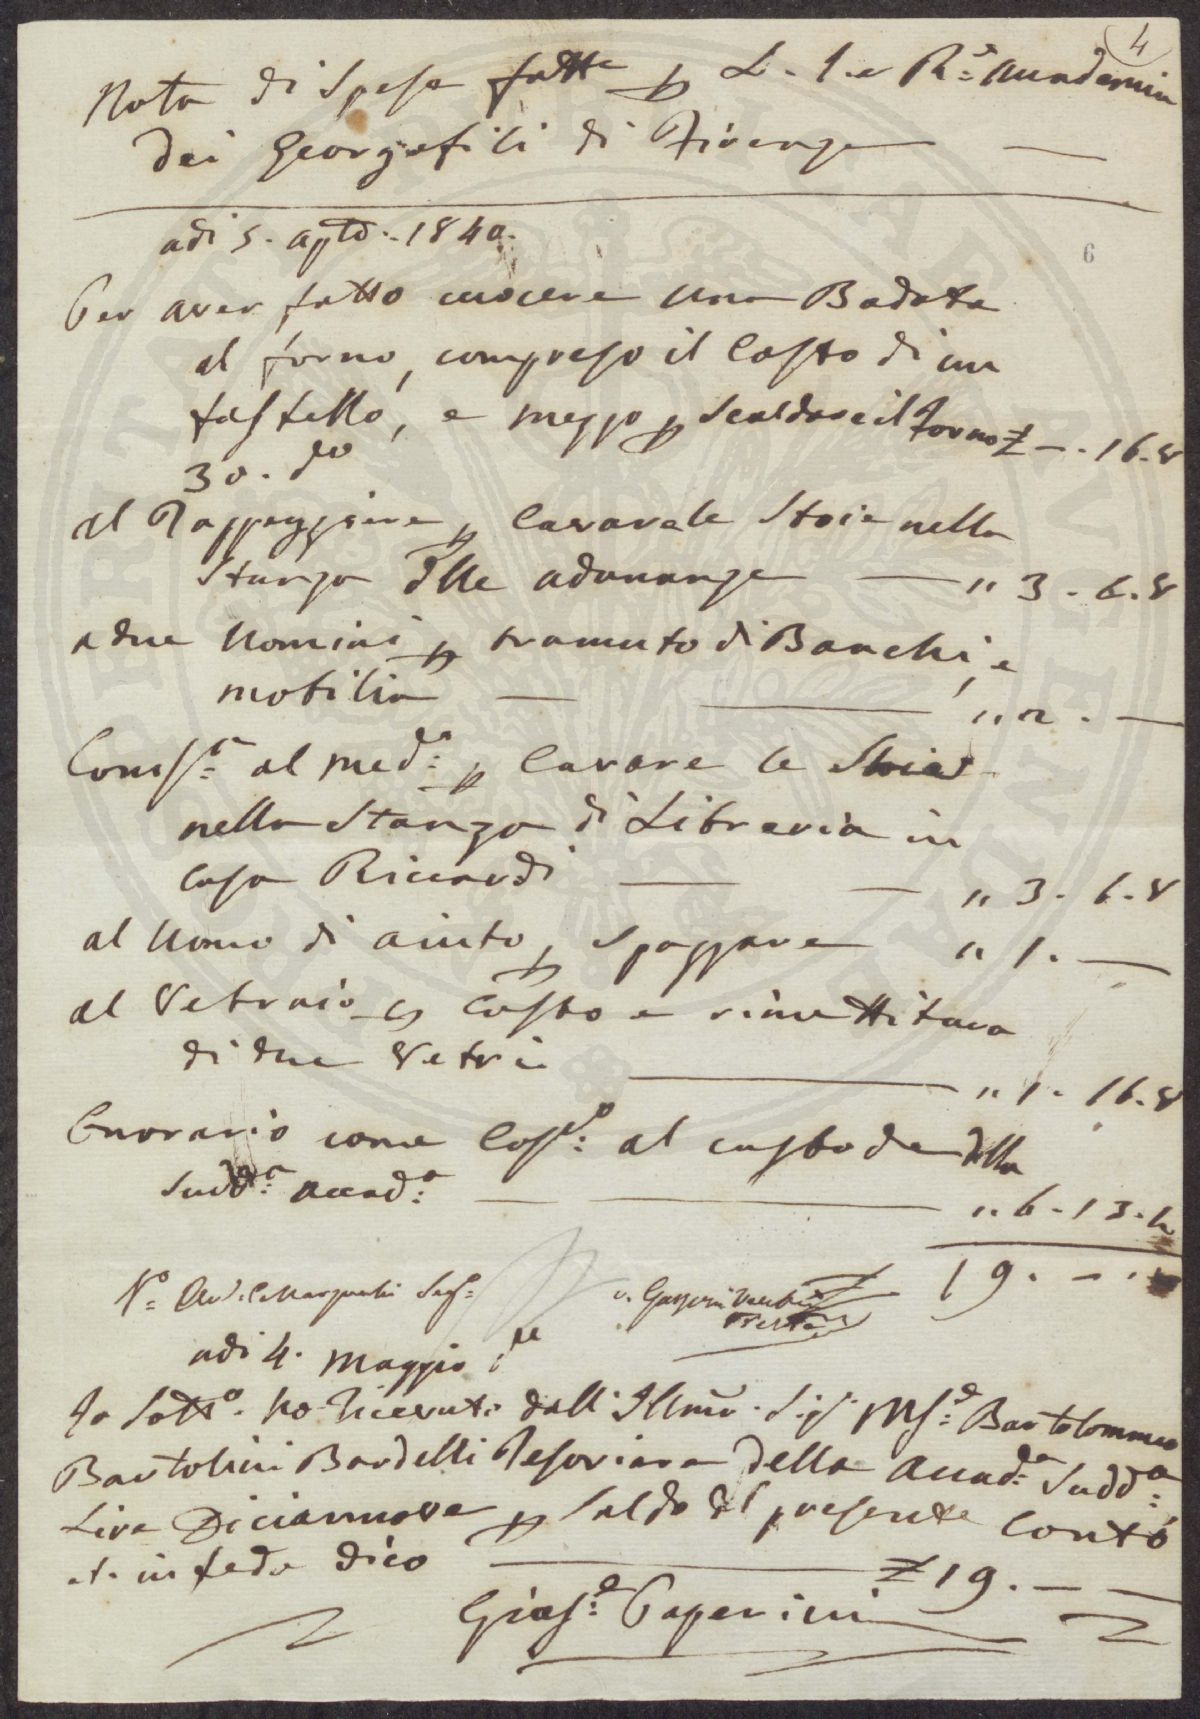 4
Nota di Spese fatte p L. I. e R.e Accademia
dei Georgofili di Firenze —
6
adi 5. aplē. 1840.
Per aver fatto cuocere una Badata
al forno, compreso il Costo di un
fastello, e mezzo p Scaldare il forno £ —. 16. 8
30. do
al Tappezziere p Cavare le Stoie nella
Stanza dlle adunanze — " 3. 6. 8
a due Uomini p tramuto di Banchi, e
mobilia — — " 2. —
Consa. al med.o p Cavare le Stoie
nella Stanza di Libreria in
Casa Riccardi — — " 3. 6. 8
al Uomo di aiuto p Spazzare " 1. —
al Vetraio p Costo e rimettitura
di due Vetri — " 1. 16. 8
Onorario come Cos.o al custode della
Sudd.a Accad.a — — " 6. 13. 4
19. — . —
V.o Seg.
adi 4. Maggio de
Io Sotto. ho Ricevuto dall' Illmo. Sig. Mse. Bartolommeo
Bartolini Bardelli Tesoriere della Accad.a Sudd.a
Lire Diciannove p Saldo del presente Conto
et. in fede dico — £ 19. — —
Gius.e Paperini